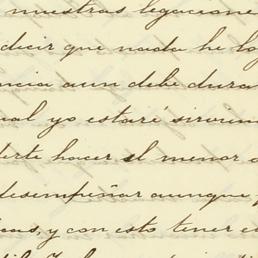 muestras legacione
decir que nada he lo
ncia aun debe dura
ual yo estaré sirvien
derte hacer el menor
desempeñar aunque
cas, y con esto tener